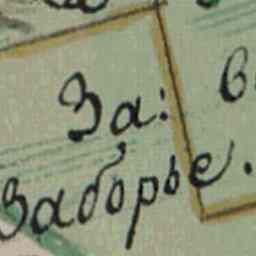 За:
Заборье.